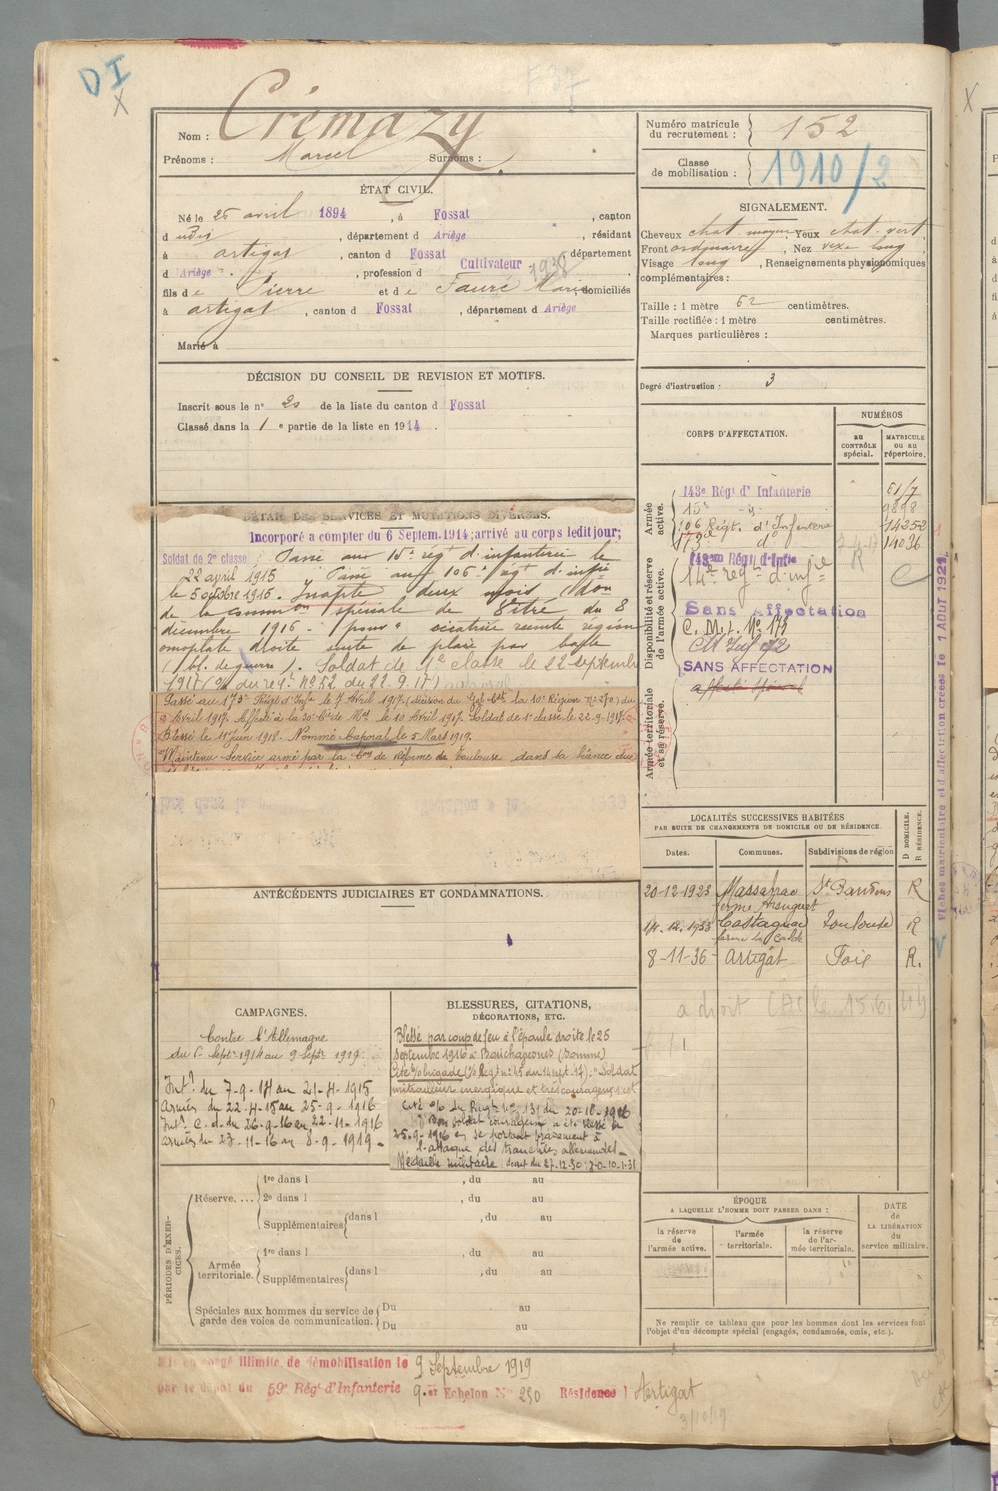 DI
X
Nom : Crémazy
Prénoms : Marcel Surnoms :
ÉTAT CIVIL.
Né le 25 avril 1894, à Fossat, canton
d udit, département d Ariège, résidant
à artigat, canton d Fossat, département
d Ariège, profession d Cultivateur
fils de Pierre et de Fauré Marie, domiciliés
à artigat, canton d Fossat, département d Ariège
Marié à
DÉCISION DU CONSEIL DE REVISION ET MOTIFS.
Inscrit sous le n° 20 de la liste du canton d Fossat
Classé dans la 1e partie de la liste en 1914.
DÉTAIL DES SERVICES ET MUTATIONS DIVERSES.
Incorporé a compter du 6 Septem. 1914; arrivé au corps ledit jour;
Soldat de 2e classe. Passé au 15e régt d'infanterie le
22 avril 1915. Passé au 106e régt d'infrie
le 5 octobre 1915. Inapte deux mois don
de la commion spéciale de du 8
décembre 1916 - pour "cicatrice récente région
omoplate droite suite de plaie par balle
(bl. de guerre). Soldat de 1e classe le 22 septembre
1917 (o/ du régt n° 52 du 22.9.17)
Passé au 173e Régt d'Infie le 7 Avril 1917. (décision du Gal Cdt la 10e Région n° 270) du
2 Avril 1917. Affecté à la 30e Cie de Mrs le 10 Avril 1917. Soldat de 1e classe le 22-9-1917.
Blessé le 11 Juin 1918. Nommé Caporal le 5 Mars 1919.
Maintenu Service armé par la Con de Réforme de Toulouse dans sa séance du
ANTÉCÉDENTS JUDICIAIRES ET CONDAMNATIONS.
CAMPAGNES.
Contre l'Allemagne
du 6 Septr 1914 au 9 Septr 1919.
Intr du 7-9-14 au 21-4-1915
Armées du 22-4-15 au 25-9-1916
Intr C.d. du 26-9-16 au 22-11-1916
armées du 27-11-16 au 8-9-1919
BLESSURES, CITATIONS,
DÉCORATIONS, ETC.
Blessé par coup de feu à l'épaule droite le 25
septembre 1916 à Bouchavesnes (Somme)
Cité o/ brigade n° 45 au 14 sept. 17): "Soldat
mitrailleur énergique et très courageux, s'est
Cité o/o du Régt n° 131 du 20-10-1916
"Bon soldat courageux a été blessé le
25-9-1916 en se portant bravement à
l'attaque des tranchées allemandes"
Médaille militaire décret du 27.12.30 J.O. 10.1.31
PÉRIODES D'EXERCICES.
Réserve. ... 1re dans l , du au
2e dans l , du au
Supplémentaires dans l , du au
Armée territoriale. 1re dans l , du au
Supplémentaires dans l , du au
Spéciales aux hommes du service de
garde des voies de communication. Du au
Du au
Mis en congé illimité de démobilisation le 9 Septembre 1919
par le dépôt du 59e Régt d'Infanterie 9e Echelon N° 230 Résidence Artigat
3/10/19
Numéro matricule
du recrutement : 152
Classe
de mobilisation : 1910/2
SIGNALEMENT.
Cheveux chat. moyen Yeux chat. vert
Front ordinaire, Nez vexe long
Visage long, Renseignements physionomiques
complémentaires :
Taille : 1 mètre 62 centimètres.
Taille rectifiée : 1 mètre centimètres.
Marques particulières :
Degré d'instruction : 3
CORPS D'AFFECTATION.
NUMÉROS
au
CONTRÔLE
spécial.
MATRICULE
ou au
répertoire.
Armée active.
143e Régt d'Infanterie 61/7
15e -"- 9898
106 Régt d'Infanterie 14252
173e do 14036
Disponibilité et réserve de l'armée active.
143ème Régt d'Infie
14e régt d'infie
Sans Affectation
C. M. I. N° 173
SANS AFFECTATION
affecté spécial
Armée territoriale et sa réserve.
LOCALITÉS SUCCESSIVES HABITÉES
PAR SUITE DE CHANGEMENTS DE DOMICILE OU DE RÉSIDENCE.
Dates. Communes. Subdivisions de région D DOMICILE. R RÉSIDENCE.
20-12-1923 Massabrac St Gaudens R
14.12.1933 Castagnac Toulouse R
8-11-36 Artigat Foix R.
a droit
ÉPOQUE
A LAQUELLE L'HOMME DOIT PASSER DANS :
la réserve
de
l'armée active.
l'armée
territoriale.
la réserve
de l'ar-
mée territoriale.
DATE
de
LA LIBÉRATION
du
service militaire.
Ne remplir ce tableau que pour les hommes dont les services font
l'objet d'un décompte spécial (engagés, condamnés, omis, etc.).
Fiches matriculaire et d'affectation créées le 1 AOUT 1921